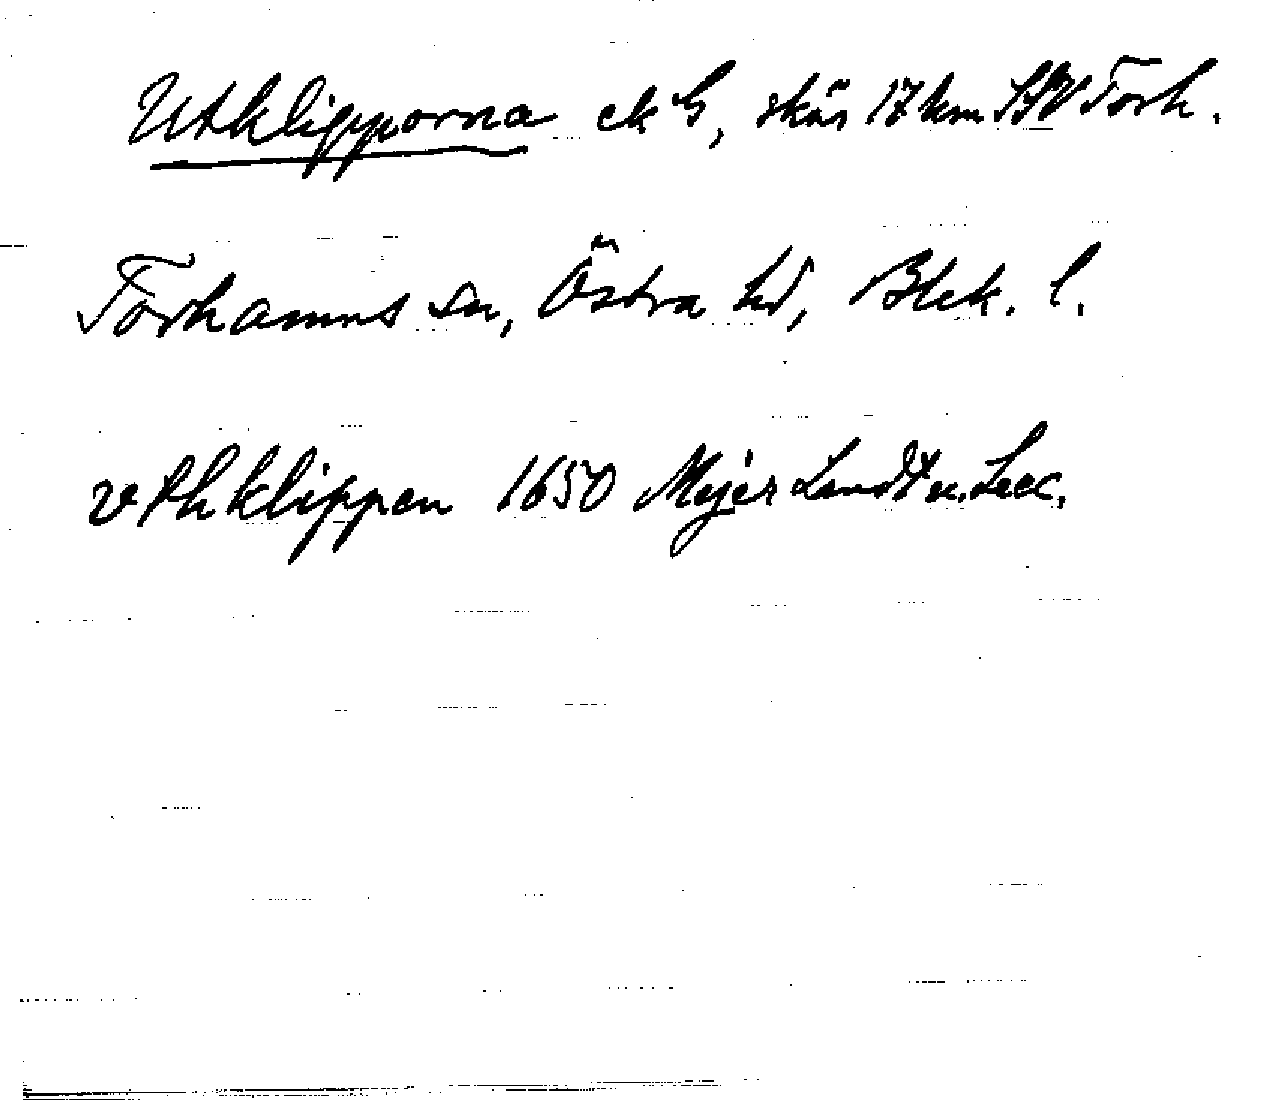 Utklipporna ek G, skär 17 km SSV Torh.
Torhamns sn, Östra hd, Blek. l.
vthklippen 1650 Mejer Landt u. Seec.